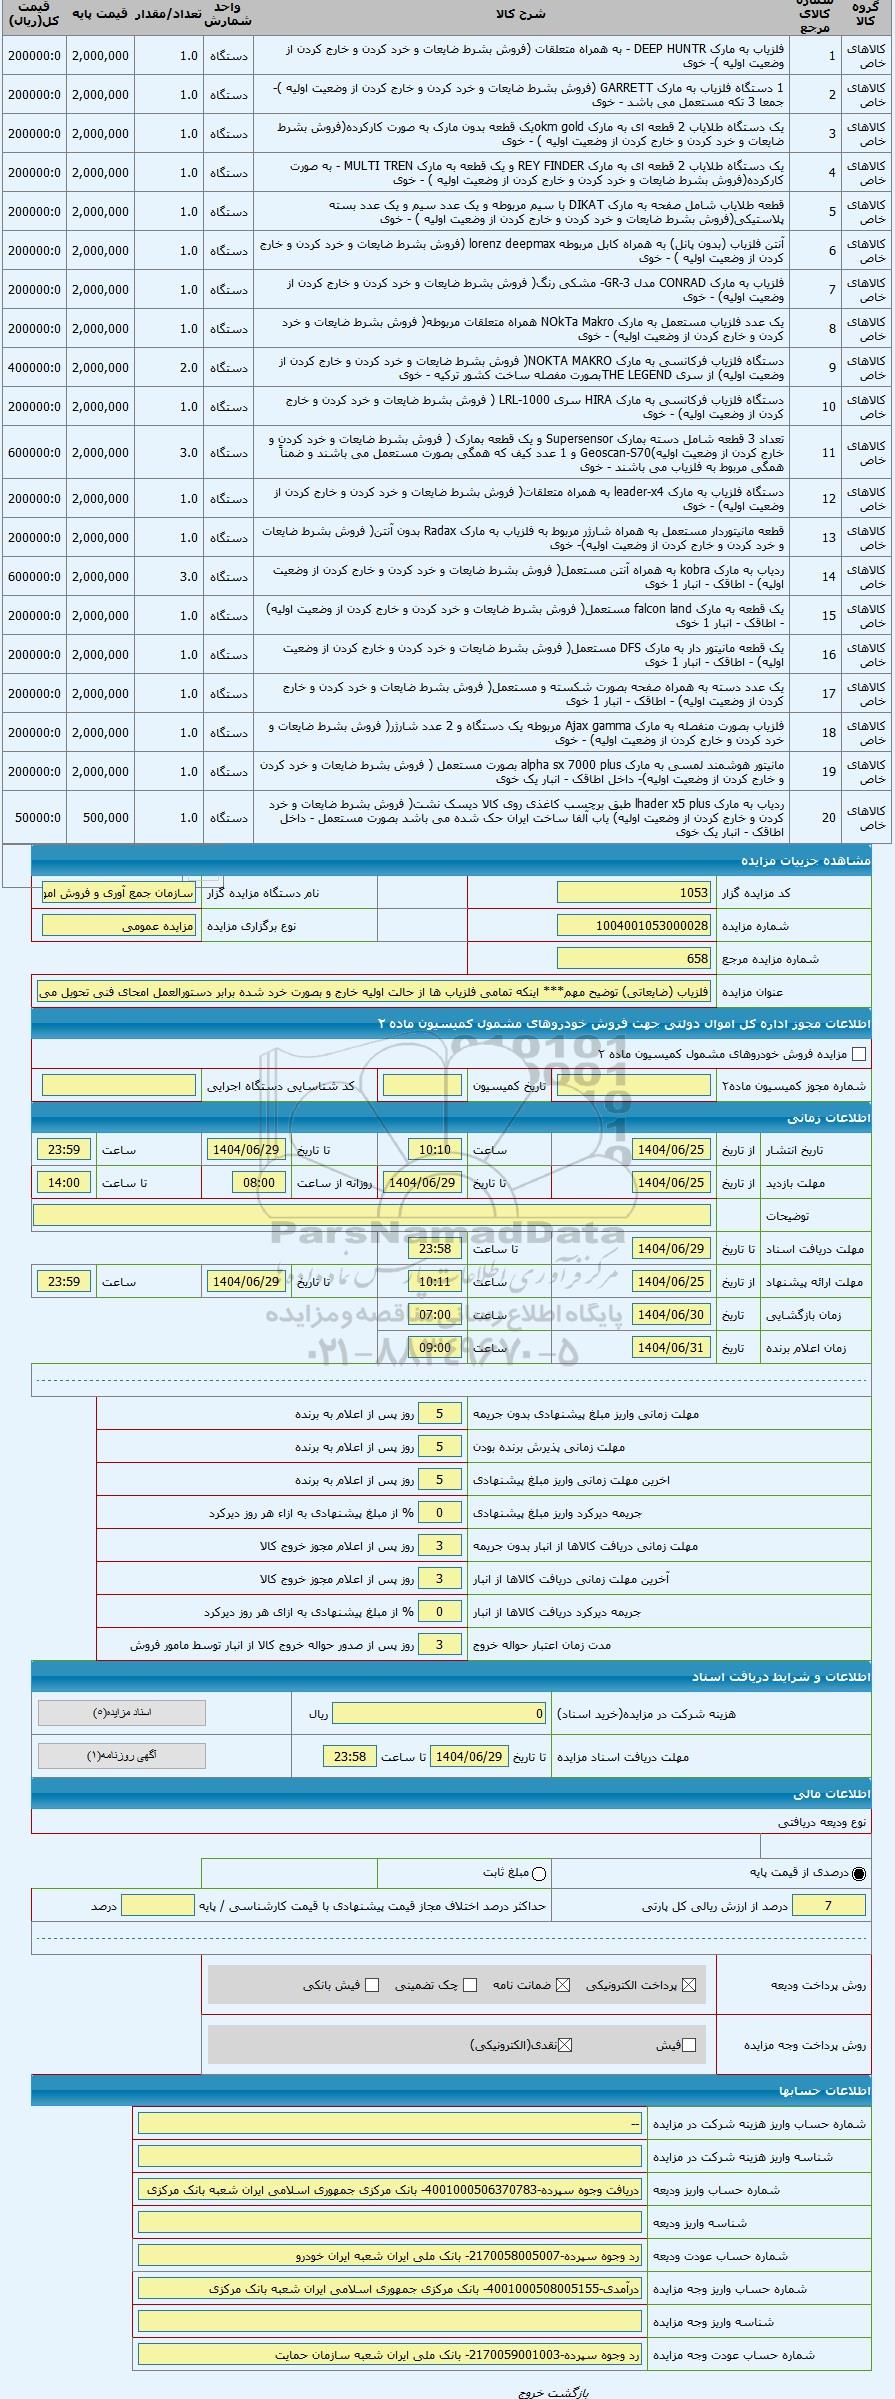 گروه کالا | شماره کالای مرجع | شرح کالا | واحد شمارش | تعداد/مقدار | قیمت پایه | قیمت کل(ریال)
کالاهای خاص | 1 | فلزیاب به مارک DEEP HUNTR - به همراه متعلقات (فروش بشرط ضایعات و خرد کردن و خارج کردن از وضعیت اولیه )- خوی | دستگاه | 1.0 | 2,000,000 | 200000:0
کالاهای خاص | 2 | 1 دستگاه فلزیاب به مارک GARRETT (فروش بشرط ضایعات و خرد کردن و خارج کردن از وضعیت اولیه )- جمعا 3 تکه مستعمل می باشد - خوی | دستگاه | 1.0 | 2,000,000 | 200000:0
کالاهای خاص | 3 | یک دستگاه طلایاب 2 قطعه ای به مارک okm goldیک قطعه بدون مارک به صورت کارکرده(فروش بشرط ضایعات و خرد کردن و خارج کردن از وضعیت اولیه ) - خوی | دستگاه | 1.0 | 2,000,000 | 200000:0
کالاهای خاص | 4 | یک دستگاه طلایاب 2 قطعه ای به مارک REY FINDER و یک قطعه به مارک MULTI TREN - به صورت کارکرده(فروش بشرط ضایعات و خرد کردن و خارج کردن از وضعیت اولیه ) - خوی | دستگاه | 1.0 | 2,000,000 | 200000:0
کالاهای خاص | 5 | قطعه طلایاب شامل صفحه به مارک DIKAT با سیم مربوطه و یک عدد سیم و یک عدد بسته پلاستیکی(فروش بشرط ضایعات و خرد کردن و خارج کردن از وضعیت اولیه ) - خوی | دستگاه | 1.0 | 2,000,000 | 200000:0
کالاهای خاص | 6 | آنتن فلزیاب (بدون پانل) به همراه کابل مربوطه lorenz deepmax (فروش بشرط ضایعات و خرد کردن و خارج کردن از وضعیت اولیه ) - خوی | دستگاه | 1.0 | 2,000,000 | 200000:0
کالاهای خاص | 7 | فلزیاب به مارک CONRAD مدل GR-3- مشکی رنگ( فروش بشرط ضایعات و خرد کردن و خارج کردن از وضعیت اولیه) - خوی | دستگاه | 1.0 | 2,000,000 | 200000:0
کالاهای خاص | 8 | یک عدد فلزیاب مستعمل به مارک NOkTa Makro همراه متعلقات مربوطه( فروش بشرط ضایعات و خرد کردن و خارج کردن از وضعیت اولیه) - خوی | دستگاه | 1.0 | 2,000,000 | 200000:0
کالاهای خاص | 9 | دستگاه فلزیاب فرکانسی به مارک NOKTA MAKRO( فروش بشرط ضایعات و خرد کردن و خارج کردن از وضعیت اولیه) از سری THE LEGENDبصورت مفصله ساخت کشور ترکیه - خوی | دستگاه | 2.0 | 2,000,000 | 400000:0
کالاهای خاص | 10 | دستگاه فلزیاب فرکانسی به مارک HIRA سری LRL-1000 ( فروش بشرط ضایعات و خرد کردن و خارج کردن از وضعیت اولیه) - خوی | دستگاه | 1.0 | 2,000,000 | 200000:0
کالاهای خاص | 11 | تعداد 3 قطعه شامل دسته بمارک Supersensor و یک قطعه بمارک ( فروش بشرط ضایعات و خرد کردن و خارج کردن از وضعیت اولیه)Geoscan-S70 و 1 عدد کیف که همگی بصورت مستعمل می باشند و ضمناً همگی مربوط به فلزیاب می باشند - خوی | دستگاه | 3.0 | 2,000,000 | 600000:0
کالاهای خاص | 12 | دستگاه فلزیاب به مارک leader-x4 به همراه متعلقات( فروش بشرط ضایعات و خرد کردن و خارج کردن از وضعیت اولیه) - خوی | دستگاه | 1.0 | 2,000,000 | 200000:0
کالاهای خاص | 13 | قطعه مانیتوردار مستعمل به همراه شارژر مربوط به فلزیاب به مارک Radax بدون آنتن( فروش بشرط ضایعات و خرد کردن و خارج کردن از وضعیت اولیه)- خوی | دستگاه | 1.0 | 2,000,000 | 200000:0
کالاهای خاص | 14 | ردیاب به مارک kobra به همراه آنتن مستعمل( فروش بشرط ضایعات و خرد کردن و خارج کردن از وضعیت اولیه) - اطاقک - انبار 1 خوی | دستگاه | 3.0 | 2,000,000 | 600000:0
کالاهای خاص | 15 | یک قطعه به مارک falcon land مستعمل( فروش بشرط ضایعات و خرد کردن و خارج کردن از وضعیت اولیه) - اطاقک - انبار 1 خوی | دستگاه | 1.0 | 2,000,000 | 200000:0
کالاهای خاص | 16 | یک قطعه مانیتور دار به مارک DFS مستعمل( فروش بشرط ضایعات و خرد کردن و خارج کردن از وضعیت اولیه) - اطاقک - انبار 1 خوی | دستگاه | 1.0 | 2,000,000 | 200000:0
کالاهای خاص | 17 | یک عدد دسته به همراه صفحه بصورت شکسته و مستعمل( فروش بشرط ضایعات و خرد کردن و خارج کردن از وضعیت اولیه) - اطاقک - انبار 1 خوی | دستگاه | 1.0 | 2,000,000 | 200000:0
کالاهای خاص | 18 | فلزیاب بصورت منفصله به مارک Ajax gamma مربوطه یک دستگاه و 2 عدد شارژر( فروش بشرط ضایعات و خرد کردن و خارج کردن از وضعیت اولیه) - خوی | دستگاه | 1.0 | 2,000,000 | 200000:0
کالاهای خاص | 19 | مانیتور هوشمند لمسی به مارک alpha sx 7000 plus بصورت مستعمل ( فروش بشرط ضایعات و خرد کردن و خارج کردن از وضعیت اولیه)- داخل اطاقک - انبار یک خوی | دستگاه | 1.0 | 2,000,000 | 200000:0
کالاهای خاص | 20 | ردیاب به مارک lhader x5 plus طبق برچسب کاغذی روی کالا دیسک نشت( فروش بشرط ضایعات و خرد کردن و خارج کردن از وضعیت اولیه) یاب آلفا ساخت ایران حک شده می باشد بصورت مستعمل - داخل اطاقک - انبار یک خوی | دستگاه | 1.0 | 500,000 | 50000:0
مشاهده جزییات مزایده
کد مزایده گزار 1053 نام دستگاه مزایده گزار سازمان جمع آوری و فروش امو
شماره مزایده 1004001053000028 نوع برگزاری مزایده مزایده عمومی
شماره مزایده مرجع 658
عنوان مزایده فلزیاب (ضایعاتی) توضیح مهم*** اینکه تمامی فلزیاب ها از حالت اولیه خارج و بصورت خرد شده برابر دستورالعمل امحای فنی تحویل می
اطلاعات مجوز اداره کل اموال دولتی جهت فروش خودروهای مشمول کمیسیون ماده ۲
مزایده فروش خودروهای مشمول کمیسیون ماده ۲
شماره مجوز کمیسیون ماده۲ تاریخ کمیسیون کد شناسایی دستگاه اجرایی
اطلاعات زمانی
تاریخ انتشار از تاریخ 1404/06/25 ساعت 10:10 تا تاریخ 1404/06/29 ساعت 23:59
مهلت بازدید از تاریخ 1404/06/25 تا تاریخ 1404/06/29 روزانه از ساعت 08:00 تا ساعت 14:00
توضیحات
ParsNamadData
مهلت دریافت اسناد تا تاریخ 1404/06/29 تا ساعت 23:58
مرکز فرآوری اطلاعات پارس نماد داده ها
مهلت ارائه پیشنهاد از تاریخ 1404/06/25 ساعت 10:11 تا تاریخ 1404/06/29 ساعت 23:59
زمان بازگشایی تاریخ 1404/06/30 ساعت 07:00
پایگاه اطلاع رسانی مناقصه و مزایده
زمان اعلام برنده تاریخ 1404/06/31 ساعت 09:00
۰۲۱-۸۸۳۴۹۶۷۰-۵
مهلت زمانی واریز مبلغ پیشنهادی بدون جریمه 5 روز پس از اعلام به برنده
مهلت زمانی پذیرش برنده بودن 5 روز پس از اعلام به برنده
اخرین مهلت زمانی واریز مبلغ پیشنهادی 5 روز پس از اعلام به برنده
جریمه دیرکرد واریز مبلغ پیشنهادی 0 % از مبلغ پیشنهادی به ازاء هر روز دیرکرد
مهلت زمانی دریافت کالاها از انبار بدون جریمه 3 روز پس از اعلام مجوز خروج کالا
آخرین مهلت زمانی دریافت کالاها از انبار 3 روز پس از اعلام مجوز خروج کالا
جریمه دیرکرد دریافت کالاها از انبار 0 % از مبلغ پیشنهادی به ازای هر روز دیرکرد
مدت زمان اعتبار حواله خروج 3 روز پس از صدور حواله خروج کالا از انبار توسط مامور فروش
اطلاعات و شرایط دریافت اسناد
هزینه شرکت در مزایده(خرید اسناد) 0 ریال اسناد مزایده(۵)
مهلت دریافت اسناد مزایده تا تاریخ 1404/06/29 تا ساعت 23:58 آگهی روزنامه(۱)
اطلاعات مالی
نوع ودیعه دریافتی
درصدی از قیمت پایه مبلغ ثابت
7 درصد از ارزش ریالی کل پارتی حداکثر درصد اختلاف مجاز قیمت پیشنهادی با قیمت کارشناسی / پایه درصد
روش پرداخت ودیعه پرداخت الکترونیکی ضمانت نامه چک تضمینی فیش بانکی
روش پرداخت وجه مزایده فیش نقدی(الکترونیکی)
اطلاعات حسابها
شماره حساب واریز هزینه شرکت در مزایده --
شناسه واریز هزینه شرکت در مزایده
شماره حساب واریز ودیعه دریافت وجوه سپرده-4001000506370783- بانک مرکزی جمهوری اسلامی ایران شعبه بانک مرکزی
شناسه واریز ودیعه
شماره حساب عودت ودیعه رد وجوه سپرده-2170058005007- بانک ملی ایران شعبه ایران خودرو
شماره حساب واریز وجه مزایده درآمدی-4001000508005155- بانک مرکزی جمهوری اسلامی ایران شعبه بانک مرکزی
شناسه واریز وجه مزایده
شماره حساب عودت وجه مزایده رد وجوه سپرده-2170059001003- بانک ملی ایران شعبه سازمان حمایت
بازگشت خروج